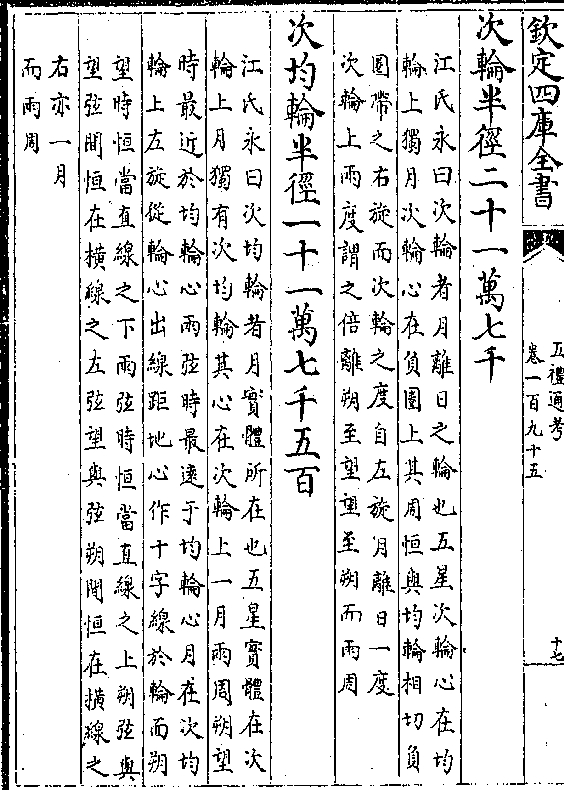 欽定四庫全書
五禮通考
卷一百九十五
十七
次輪半徑二十一萬七千
江氏永曰次輪者月離日之輪也五星次輪心在均
輪上獨月次輪心在負圏上其周恒與均輪相切負
圏帶之右旋而次輪之度自左旋月離日一度
次輪上兩度謂之倍離朔至望望至朔而兩周
次均輪半徑一十一萬七千五百
江氏永曰次均輪者月實體所在也五星實體在次
輪上月獨有次均輪其心在次輪上一月兩周朔望
時最近於均輪心兩弦時最逺于均輪心月在次均
輪上左旋從輪心出線距地心作十字線於輪而朔
望時恒當直線之下兩弦時恒當直線之上朔弦與
望弦間恒在橫線之左弦望與弦朔間恒在橫線之
右亦一月
而兩周